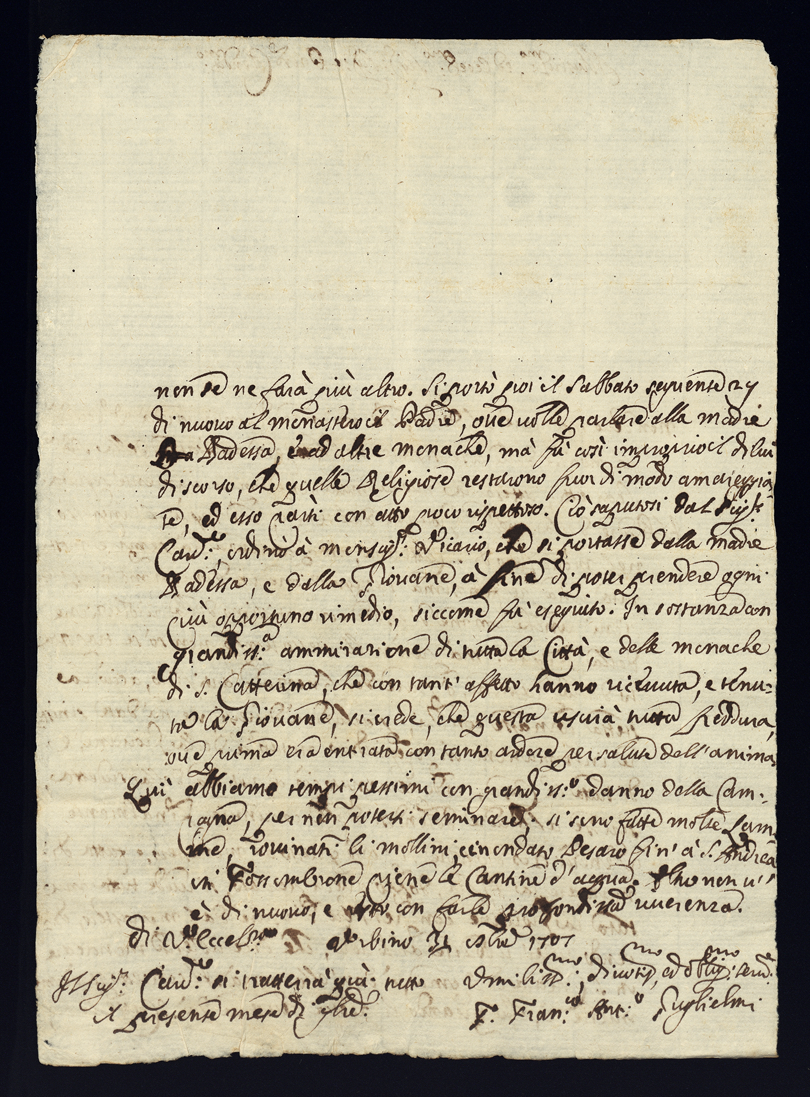 non se ne farà più altro. Si portò poi il Sabbato seguente 29
di nuovo al monastero il Padre, ove volle parlare alla madre
Badessa, ed altre monache, mà fù così improprio il di lui
discorso, che quelle Religiose restarono fuor di modo amareggia
te, ed esso partì con atto poco rispettoso. Ciò saputosi dal Sig.r
Card.le, ordinò à monsig.r Vicario, che si portasse dalla madre
Badessa, e dalla Giovane, à fine di poter prendere ogni
più opportuno rimedio, siccome fù eseguito. In sostanza con
grandiss.a ammirazione di tutta la Città, e delle monache
di S. Catterina, che con tanto affetto hanno ricevuta, e tenu-
ta la Giovane, si crede, che questa uscirà tutta freddura,
ove prima era entrata con tanto ardore per salute dell'anima.
Quì abbiamo tempi pessimi con grandiss.o danno della Cam-
pagna, per non potersi seminare. si sono fatte molte
rovinati li mollini, ed Pesaro fin' à S. Andrea
in Fossombrone piene le Cantine d'acqua. Altro non v'
è di nuovo, e resto con farle profondiss.a riverenza.
di V. Eccell. Urbino 9bre 1707
Il Sig.r Card.le si tratterrà quà tutto Umiliss.mo, divotiss.mo, ed obblig.mo serv.e
il presente mese di 9bre. F. Fran.co Ant.o Guglielmi